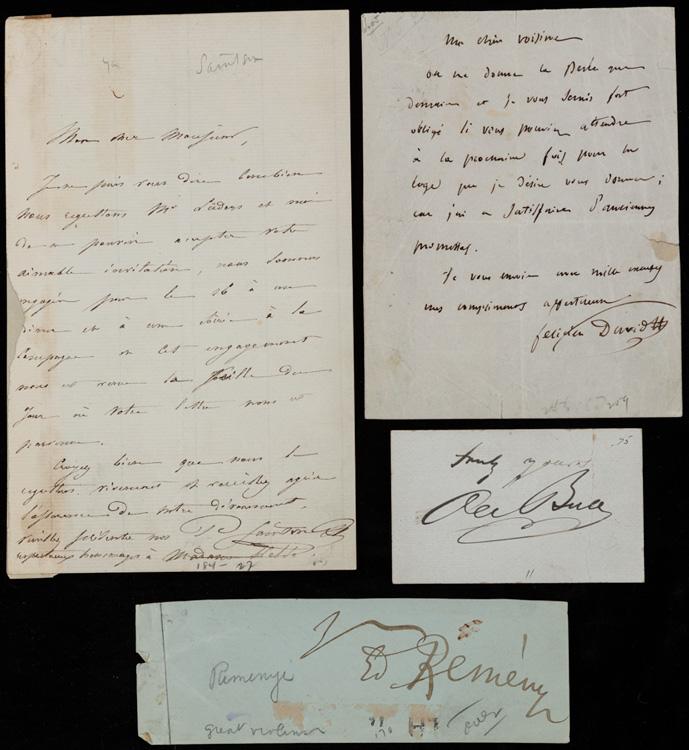 Sainton
Mon cher Monsieur,
Je ne puis vous dire combien
nous regrettons Mr et moi
de ne pouvoir accepter votre
aimable invitation, nous sommes
engagés pour le 16 à un
diner et à une soirée à la
campagne et cet engagement
nous est venu la veille du
jour où votre lettre nous est
parvenue.
Croyez bien que nous le
regrettons vivement et veuillez agréer
l'assurance de notre dévouement.
P. Sainton
veuillez présenter nos
respectueux hommages à Madame
184-27
Mon cher voisin
on ne donne la Perle que
demain et je vous serais fort
obligé si vous pouviez attendre
à la prochaine fois pour la
loge que je désire vous donner;
car j'ai à satisfaire d'anciennes
promesses.
Je vous envoie avec mille excuses
mes compliments affectueux
félicien David
truly yours
Ole Bull
75
11
Ed Reményi
Remenye
great violinist